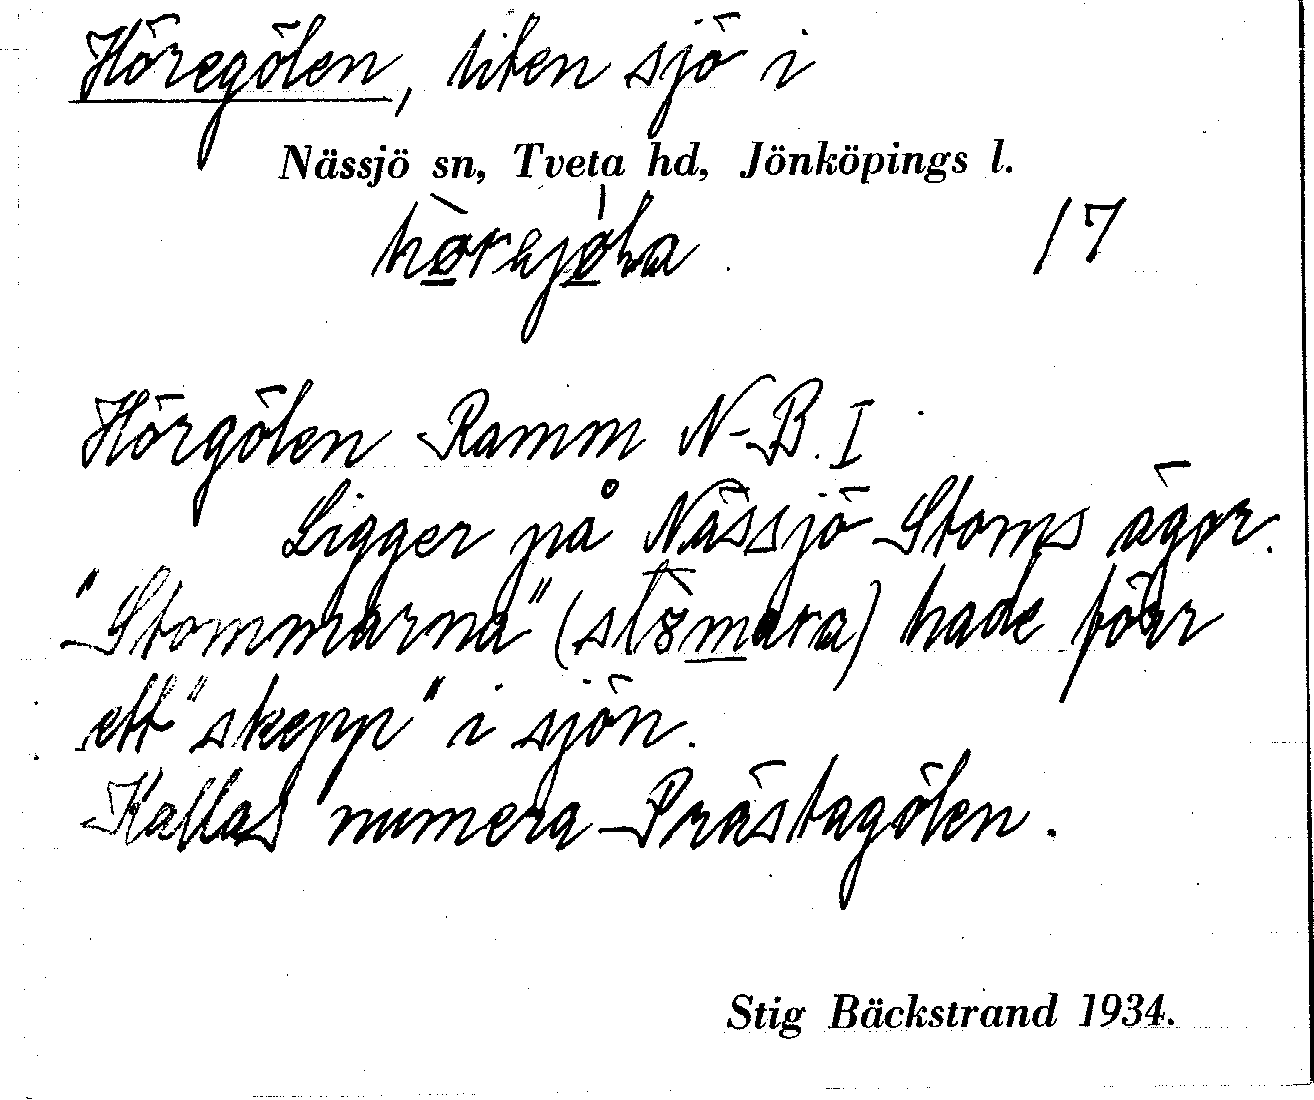 Höregölen, liten sjö i
Nässjö sn, Tveta hd, Jönköpings l.
17
Hörgölen Ramm N-B. I
Ligger på Nässjö Stoms ägor.
"Stommarna" hade förr
ett "skepp" i sjön.
Kallas numera Prästagölen.
Stig Bäckstrand 1934.